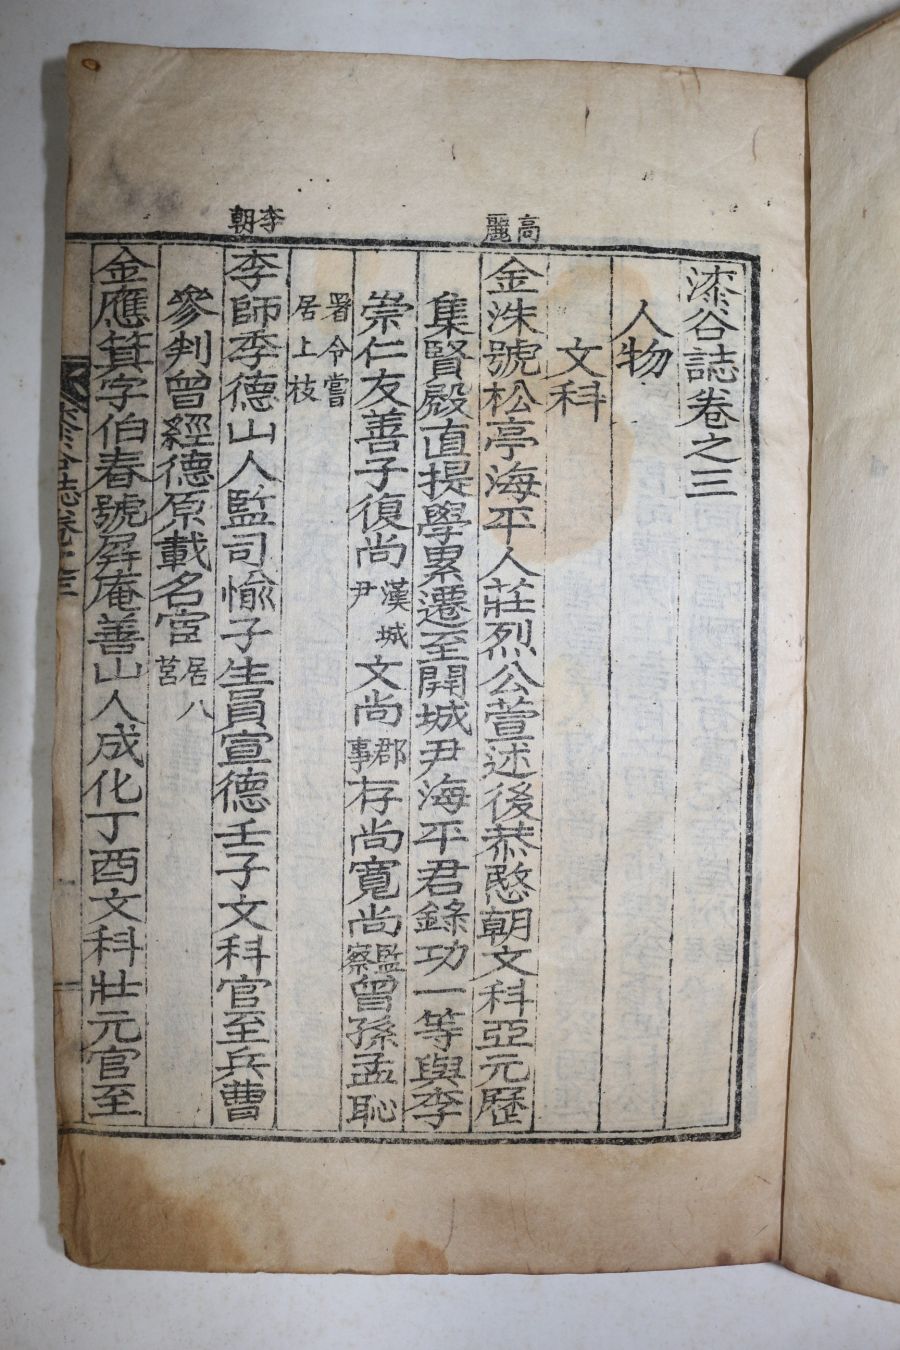 漆谷誌卷之三
人物
文科
高麗
金洙號松亭海平人莊烈公萱述後恭愍朝文科亞元歷
集賢殿直提學累遷至開城尹海平君錄功一等與李
崇仁友善子復尚漢城尹文尚郡事存尚寬尚監察曾孫孟恥
署令嘗居上枝
李朝
李師季德山人監司愉子生員宣德壬子文科官至兵曹
參判曾經德原載名宦居八莒
金應箕字伯春號屛庵善山人成化丁酉文科壯元官至
漆谷誌卷之三